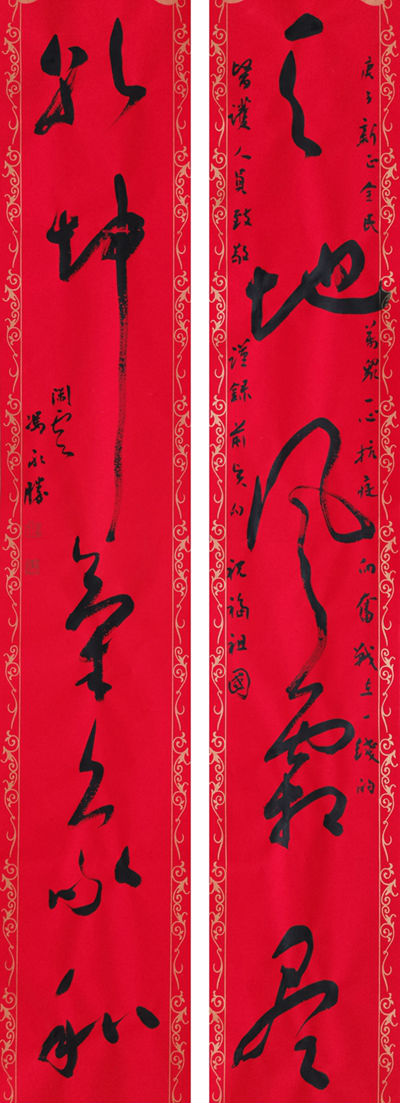 天地风霜尽
庚子新正全民萬眾一心抗疫向奮戰在一綫的
醫護人員致敬謹錄前賢句祝福祖國
乾坤氣象和
閏雲
馮永勝